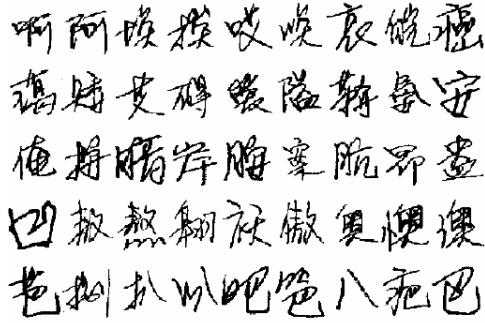 啊阿埃挨哎唉哀皑癌
蔼矮艾碍爱隘鞍氨安
俺按暗岸胺案肮昂盎
凹敖熬翱袄傲奥懊澳
芭捌扒叭吧笆八疤巴